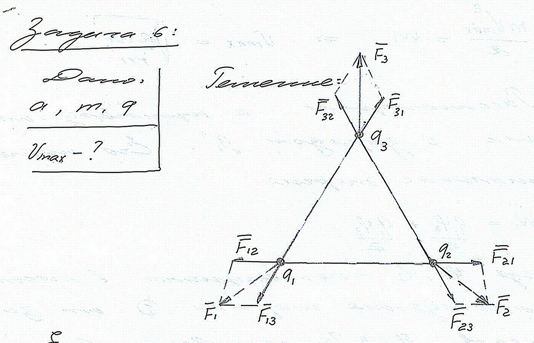 Задача 6:
Дано:
a, m, q
Vmax - ?
Решение:
F̅3
F̅32
F̅31
q3
F̅12
q1
q2
F̅21
F̅1
F̅13
F̅23
F̅2